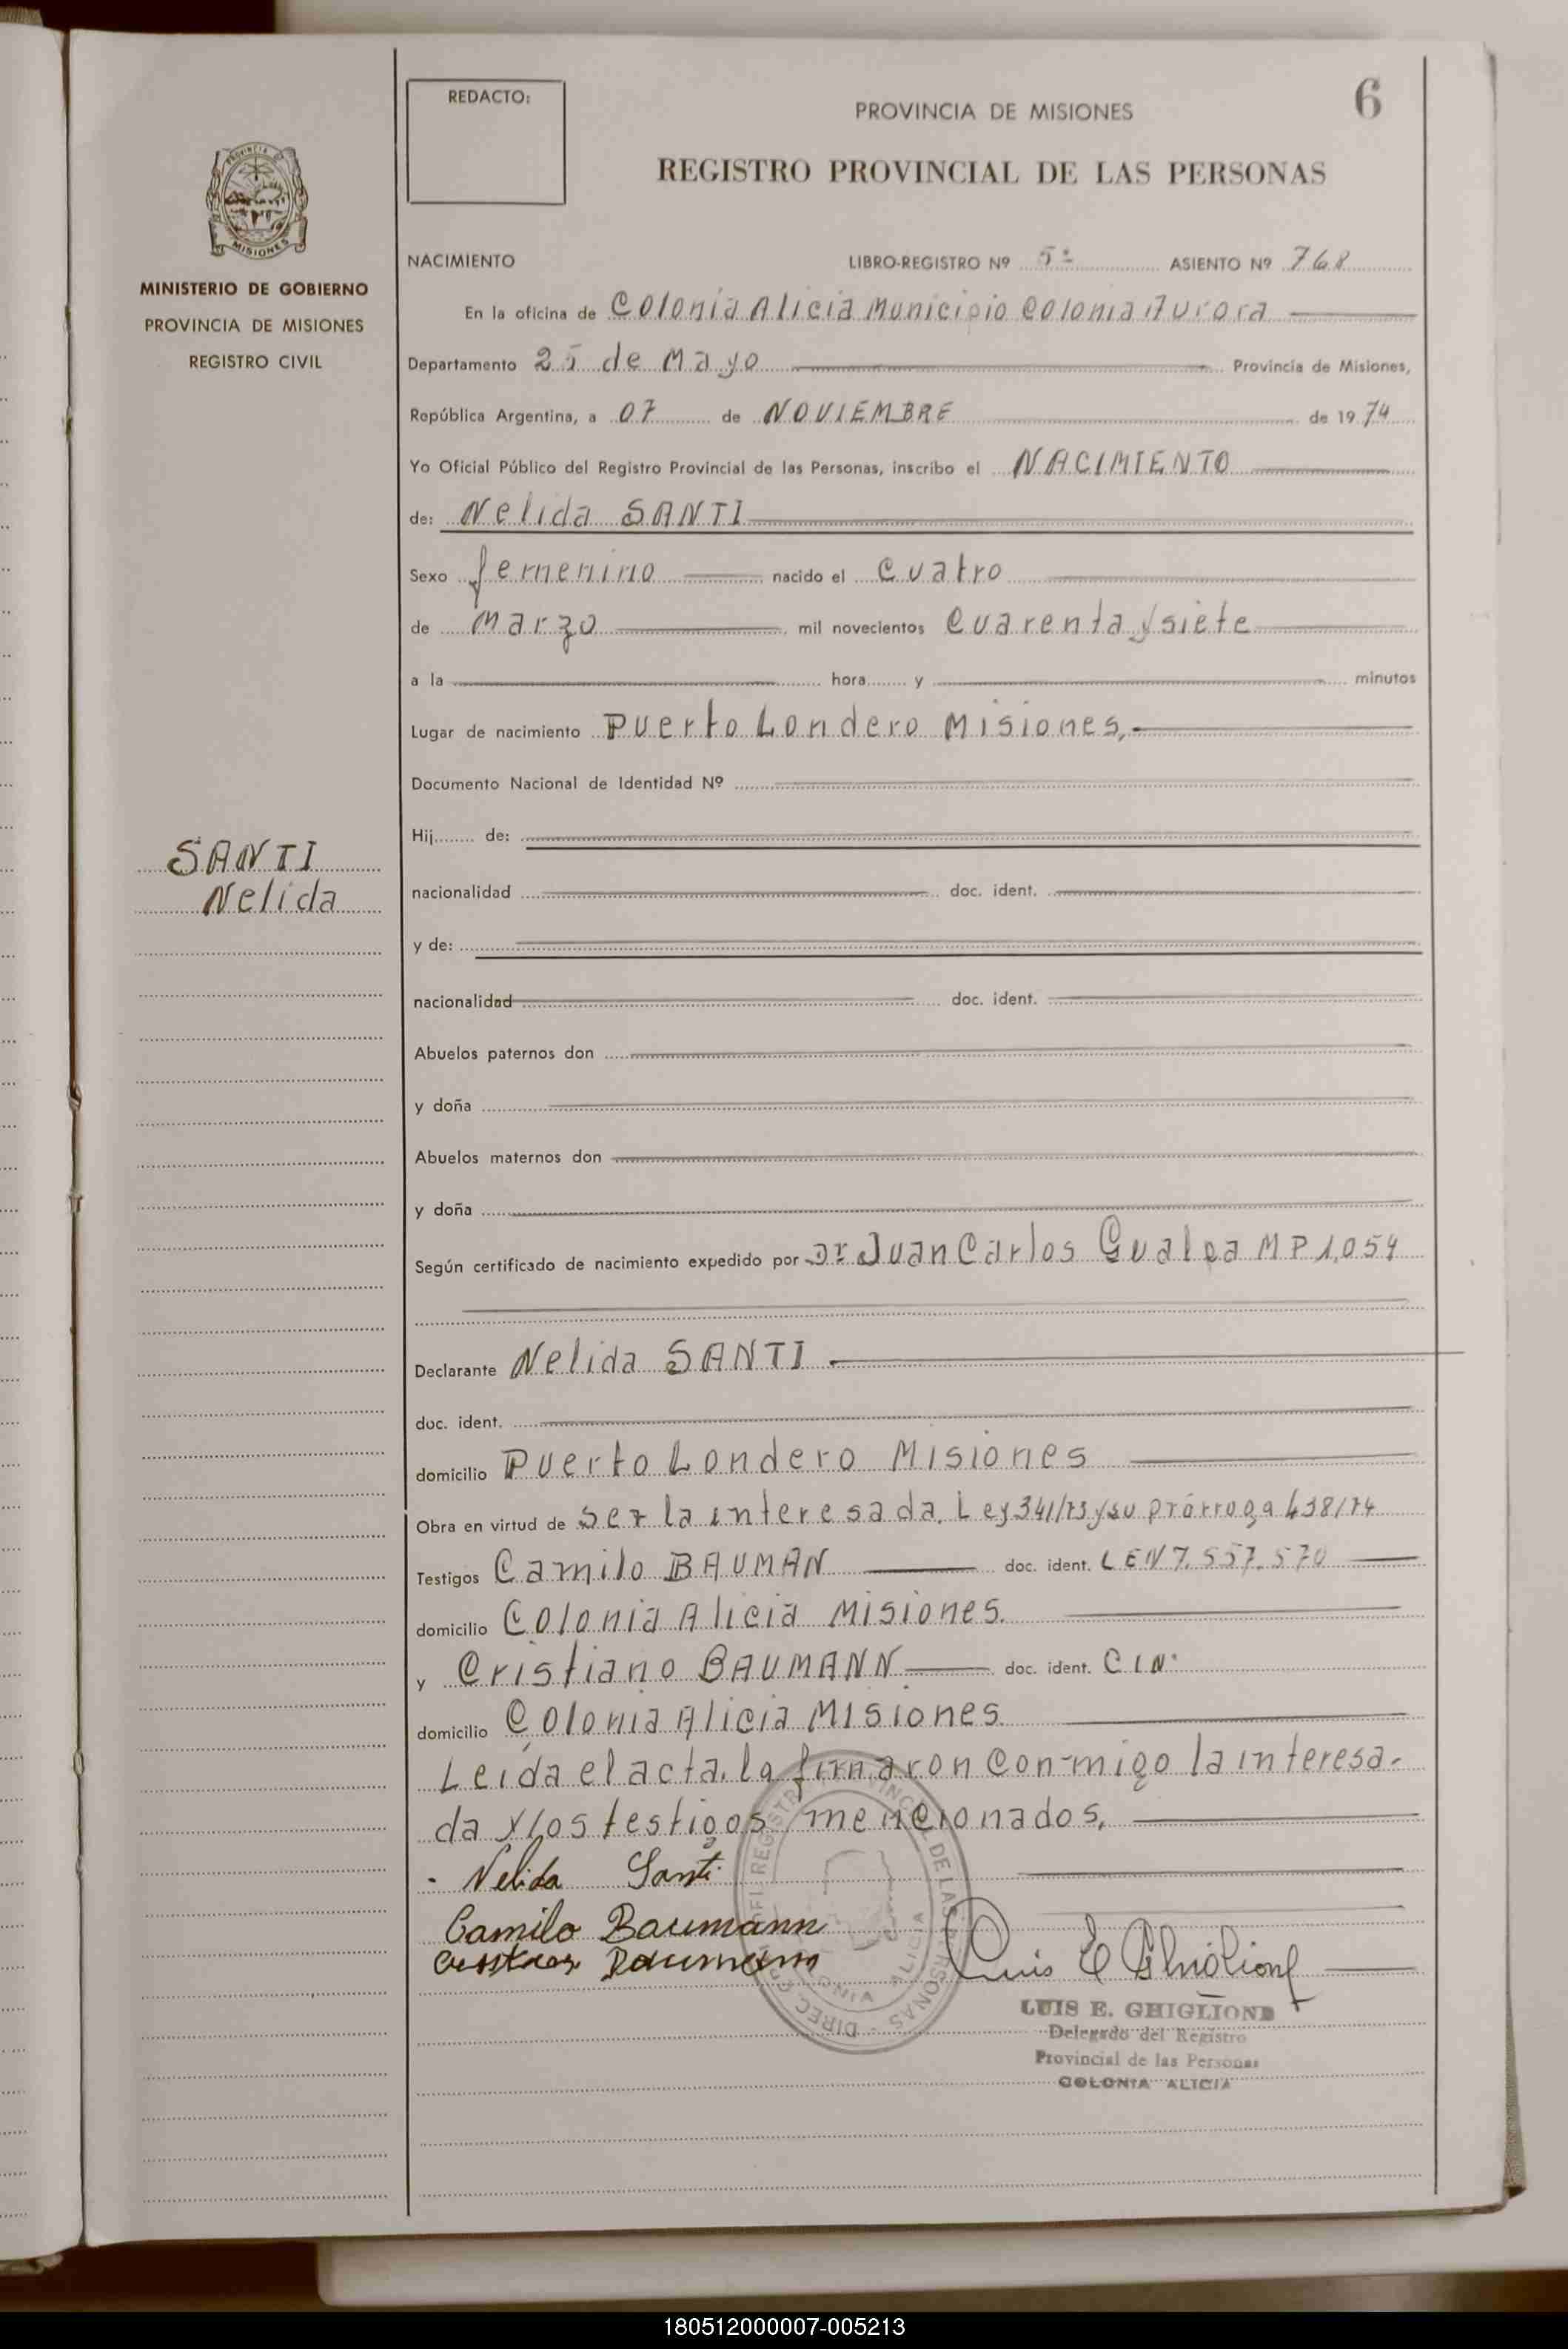 REDACTO:
PROVINCIA DE MISIONES
6
REGISTRO PROVINCIAL DE LAS PERSONAS
PROVINCIA DE
MISIONES
MINISTERIO DE GOBIERNO
PROVINCIA DE MISIONES
REGISTRO CIVIL
NACIMIENTO LIBRO-REGISTRO Nº 5º ASIENTO Nº 768
En la oficina de Colonia Alicia Municipio Colonia Aurora
Departamento 25 de Mayo Provincia de Misiones,
República Argentina, a 07 de NOVIEMBRE de 1974
Yo Oficial Público del Registro Provincial de las Personas, inscribo el NACIMIENTO
de: Nelida SANTI
Sexo femenino nacido el cuatro
de Marzo mil novecientos cuarenta y siete
a la hora y minutos
Lugar de nacimiento Puerto Londero Misiones,
Documento Nacional de Identidad Nº
Hij de:
SANTI
Nelida
nacionalidad doc. ident.
y de:
nacionalidad doc. ident.
Abuelos paternos don
y doña
Abuelos maternos don
y doña
Según certificado de nacimiento expedido por Dr Juan Carlos MP 1.054
Declarante Nelida SANTI
doc. ident.
domicilio Puerto Londero Misiones
Obra en virtud de ser la interesada. Ley 341/73 y su prórroga 438/74
Testigos Camilo BAUMAN doc. ident. LEN 7.557.570
domicilio Colonia Alicia Misiones.
y Cristiano BAUMANN doc. ident. CIN
domicilio Colonia Alicia Misiones
Leida el acta. la firmaron con-migo la interesa-
da y los testigos mencionados,
Nelida Santi
Camilo Baumann
Baumann
Luis E Ghiglione
LUIS E. GHIGLIONE
Delegado del Registro
Provincial de las Personas
COLONIA ALICIA
180512000007-005213